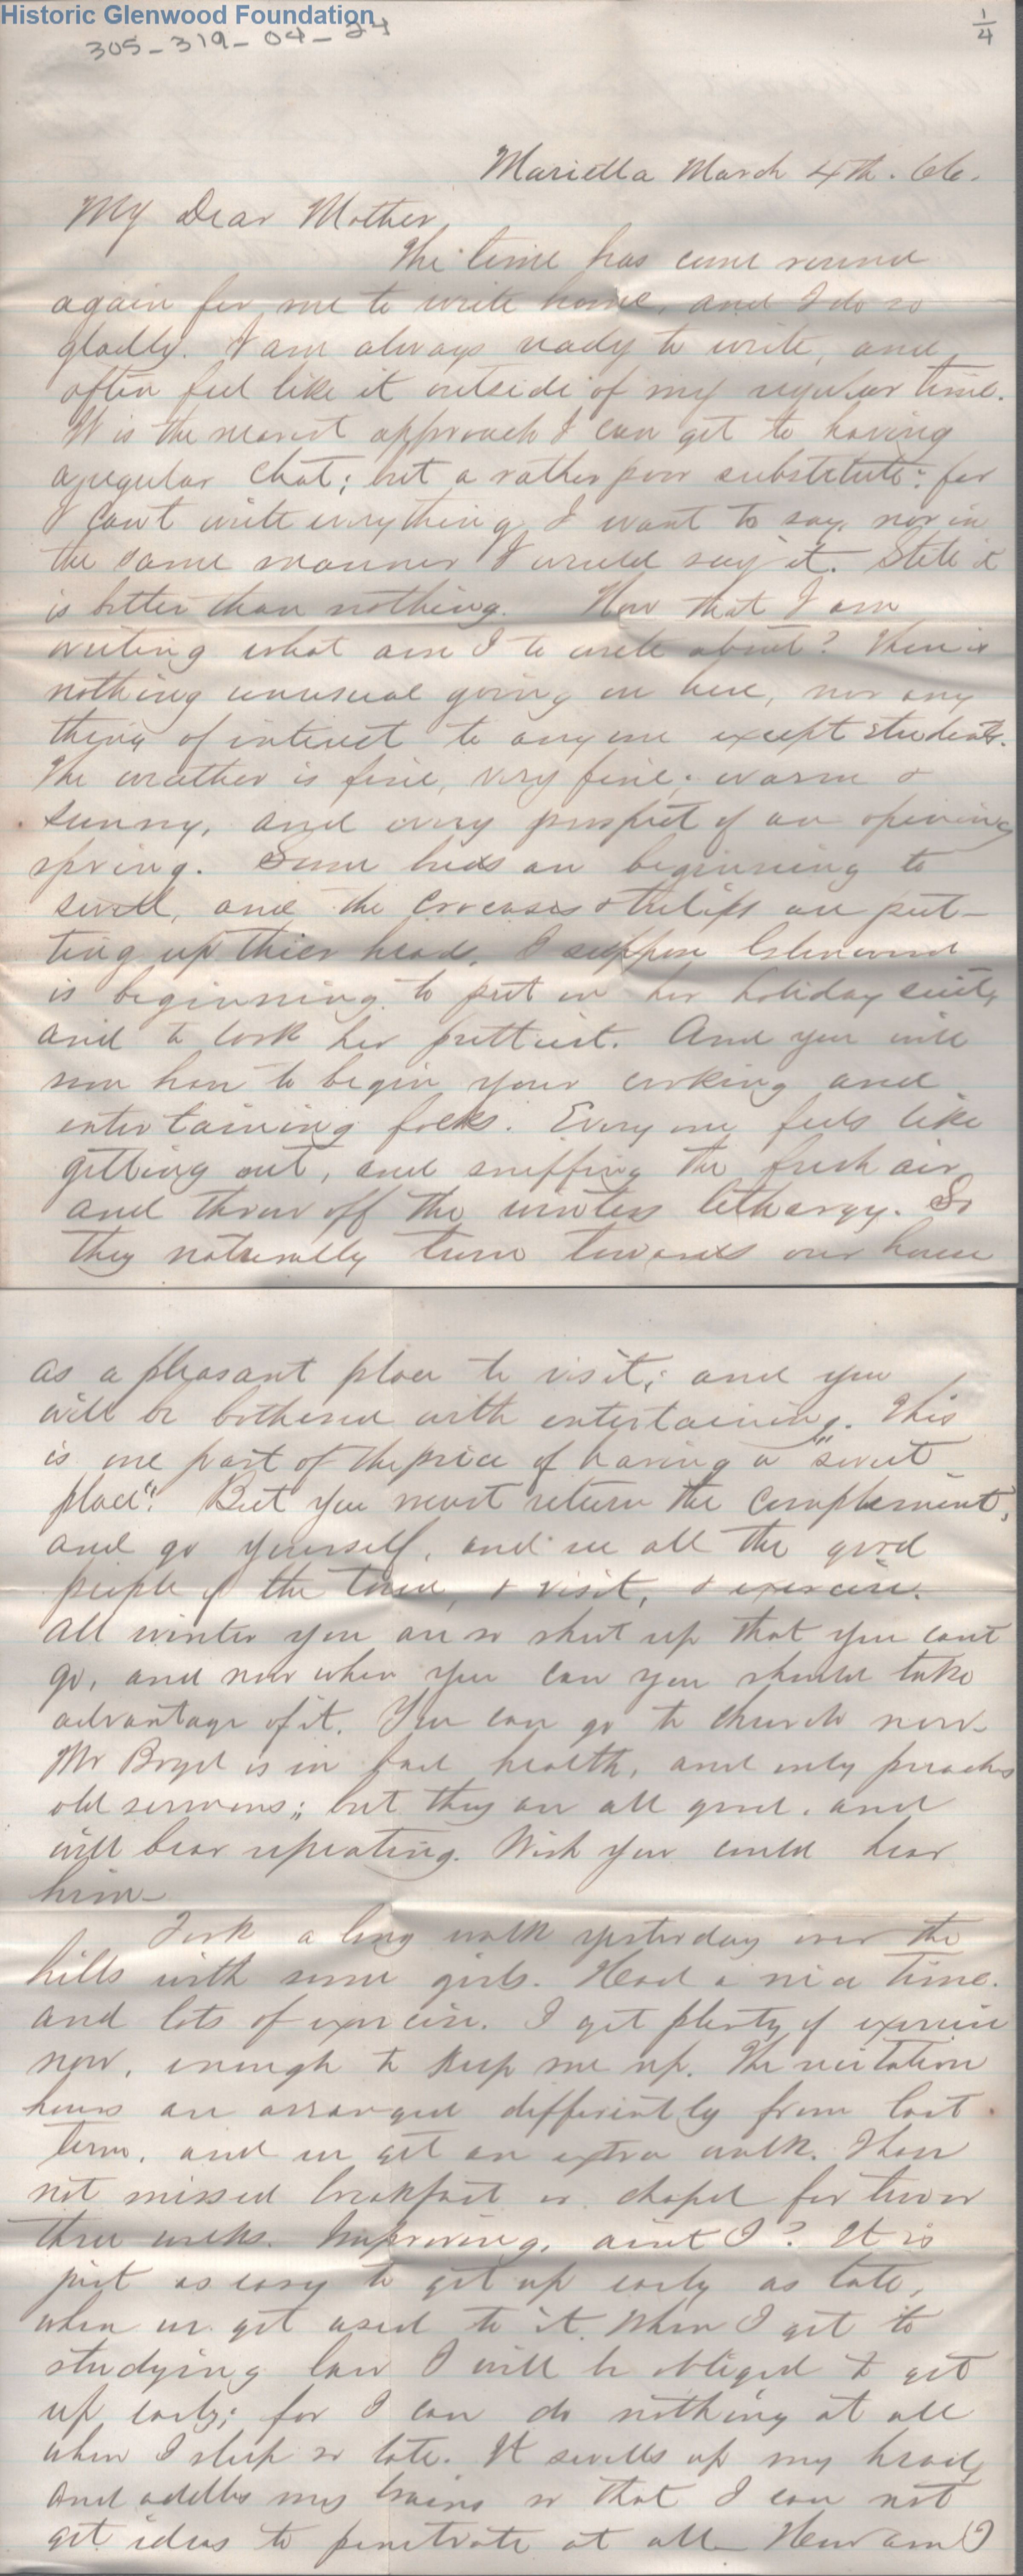 Historic Glenwood Foundation
305-319-04-24
1/4
Marietta March 4th. 66.
My Dear Mother,
The time has come round
again for me to write home, and I do so
gladly. I am always ready to write, and
often feel like it outside of my regular time.
It is the nearest approach I can get to having
a regular chat; but a rather poor substitute: for
I can't write everything I want to say, nor in
the same manner I would say it. Still it
is better than nothing. Now that I am
writing what am I to write about? There is
nothing unusual going on here, nor any
thing of interest to any one except students.
The weather is fine, very fine; warm &
sunny, and every prospect of an opening
spring. Some buds are beginning to
swell, and the crocuses & tulips are put-
ting up thier heads. I suppose Glenwood
is beginning to put on her holiday suit,
and to look her prettiest. And you will
now have to begin your cooking and
entertaining folks. Every one feels like
getting out, and sniffing the fresh air
and throw off the winters lethargy. So
they naturally turn towards our house
as a pleasant place to visit; and you
will be bothered with entertaining. This
is one part of the price of having a "sweet
place". But you must return the complement,
and go yourself, and see all the good
people of the town, & visit, & exercise.
All winter you are so shut up that you cant
go, and now when you can you should take
advantage of it. You can go to church now-
Mr Boyd is in bad health, and only preachs
old sermons; but they are all good, and
will bear repeating. Wish you could hear
him-
Took a long walk yesterday over the
hills with some girls. Had a nice time.
and lots of exercise. I get plenty of exercise
now, enough to keep me up. The recitation
hours are arranged differently from last
term, and we get an extra walk. I have
not missed breakfast or chapel for two or
three weeks. Improving, aint I? It is
just as easy to get up early as late,
when we get used to it. When I get to
studying law I will be obliged to get
up early; for I can do nothing at all
when I sleep so late. It swells up my head,
and addles my brains so that I can not
get ideas to penetrate at all. How am I